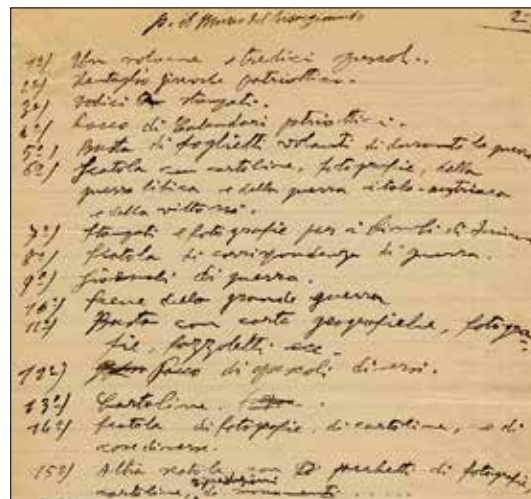 p. il Museo del Risorgimento
1º) Un volume e tredici opuscoli.
2º) Ventaglio girevole patriottico.
3º) Dodici stampati.
4º) Pacco di Calendari patriottici.
5º) Busta di foglietti volanti di durante la guerra
6º) Scatola con cartoline, fotografie, della
guerra libica e della guerra italo-austriaca
e della vittoria.
7º) Stampati e fotografie per i Bimbi di
8º) Scatola di corrispondenza di guerra.
9º) Giornali di guerra.
10º) Scene della grande guerra
11º) Busta con carte geografiche, fotogra-
fie, fazzoletti ecc
12º) Pacco di opuscoli diversi.
13º) Cartoline.
14º) Scatola di fotografie, di cartoline, e di
cose diverse.
15º) Altra scatola con pacchetti di fotografie
cartoline, di